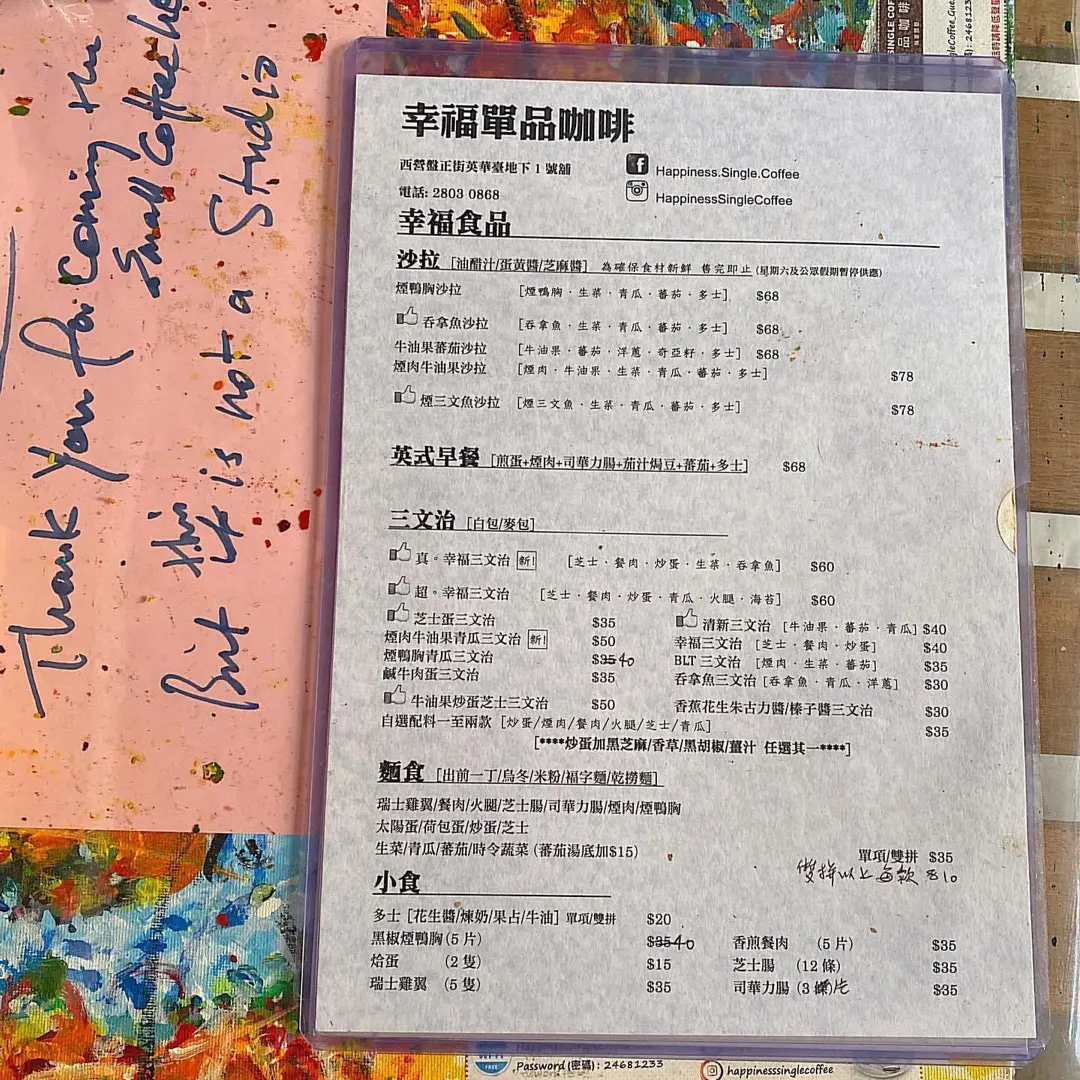 Thank You for Coming the
Small Coffee
But this
It is not a Studio
幸福單品咖啡
西營盤正街英華臺地下 1 號舖
Happiness.Single.Coffee
電話: 2803 0868
HappinessSingleCoffee
幸福食品
沙拉 [油醋汁/蛋黃醬/芝麻醬] 為確保食材新鮮 售完即止 (星期六及公眾假期暫停供應)
煙鴨胸沙拉 [煙鴨胸‧生菜‧青瓜‧蕃茄‧多士] $68
吞拿魚沙拉 [吞拿魚‧生菜‧青瓜‧蕃茄‧多士] $68
牛油果蕃茄沙拉 [牛油果‧蕃茄‧洋蔥‧奇亞籽‧多士] $68
煙肉牛油果沙拉 [煙肉‧牛油果‧生菜‧青瓜‧蕃茄‧多士] $78
煙三文魚沙拉 [煙三文魚‧生菜‧青瓜‧蕃茄‧多士] $78
英式早餐 [煎蛋+煙肉+司華力腸+茄汁焗豆+蕃茄+多士] $68
三文治 [白包/麥包]
真。幸福三文治 新! [芝士‧餐肉‧炒蛋‧生菜‧吞拿魚] $60
超。幸福三文治 [芝士‧餐肉‧炒蛋‧青瓜‧火腿‧海苔] $60
芝士蛋三文治 $35 清新三文治 [牛油果‧蕃茄‧青瓜] $40
煙肉牛油果青瓜三文治 新! $50 幸福三文治 [芝士‧餐肉‧炒蛋] $40
煙鴨胸青瓜三文治 $35 40 BLT 三文治 [煙肉‧生菜‧蕃茄] $35
鹹牛肉蛋三文治 $35 吞拿魚三文治 [吞拿魚‧青瓜‧洋蔥] $30
牛油果炒蛋芝士三文治 $50 香蕉花生朱古力醬/榛子醬三文治 $30
自選配料一至兩款 [炒蛋/煙肉/餐肉/火腿/芝士/青瓜] $35
[****炒蛋加黑芝麻/香草/黑胡椒/薑汁 任選其一****]
麵食 [出前一丁/烏冬/米粉/福字麵/乾撈麵]
瑞士雞翼/餐肉/火腿/芝士腸/司華力腸/煙肉/煙鴨胸
太陽蛋/荷包蛋/炒蛋/芝士
生菜/青瓜/蕃茄/時令蔬菜 (蕃茄湯底加$15) 單項/雙拼 $35
雙拼以上每款 $10
小食
多士 [花生醬/煉奶/果占/牛油] 單項/雙拼 $20
黑椒煙鴨胸 (5 片) $35 40 香煎餐肉 (5 片) $35
烚蛋 (2 隻) $15 芝士腸 (12 條) $35
瑞士雞翼 (5 隻) $35 司華力腸 (3 條)片 $35
FREE
Password (密碼) : 24681233
happinesssinglecoffee